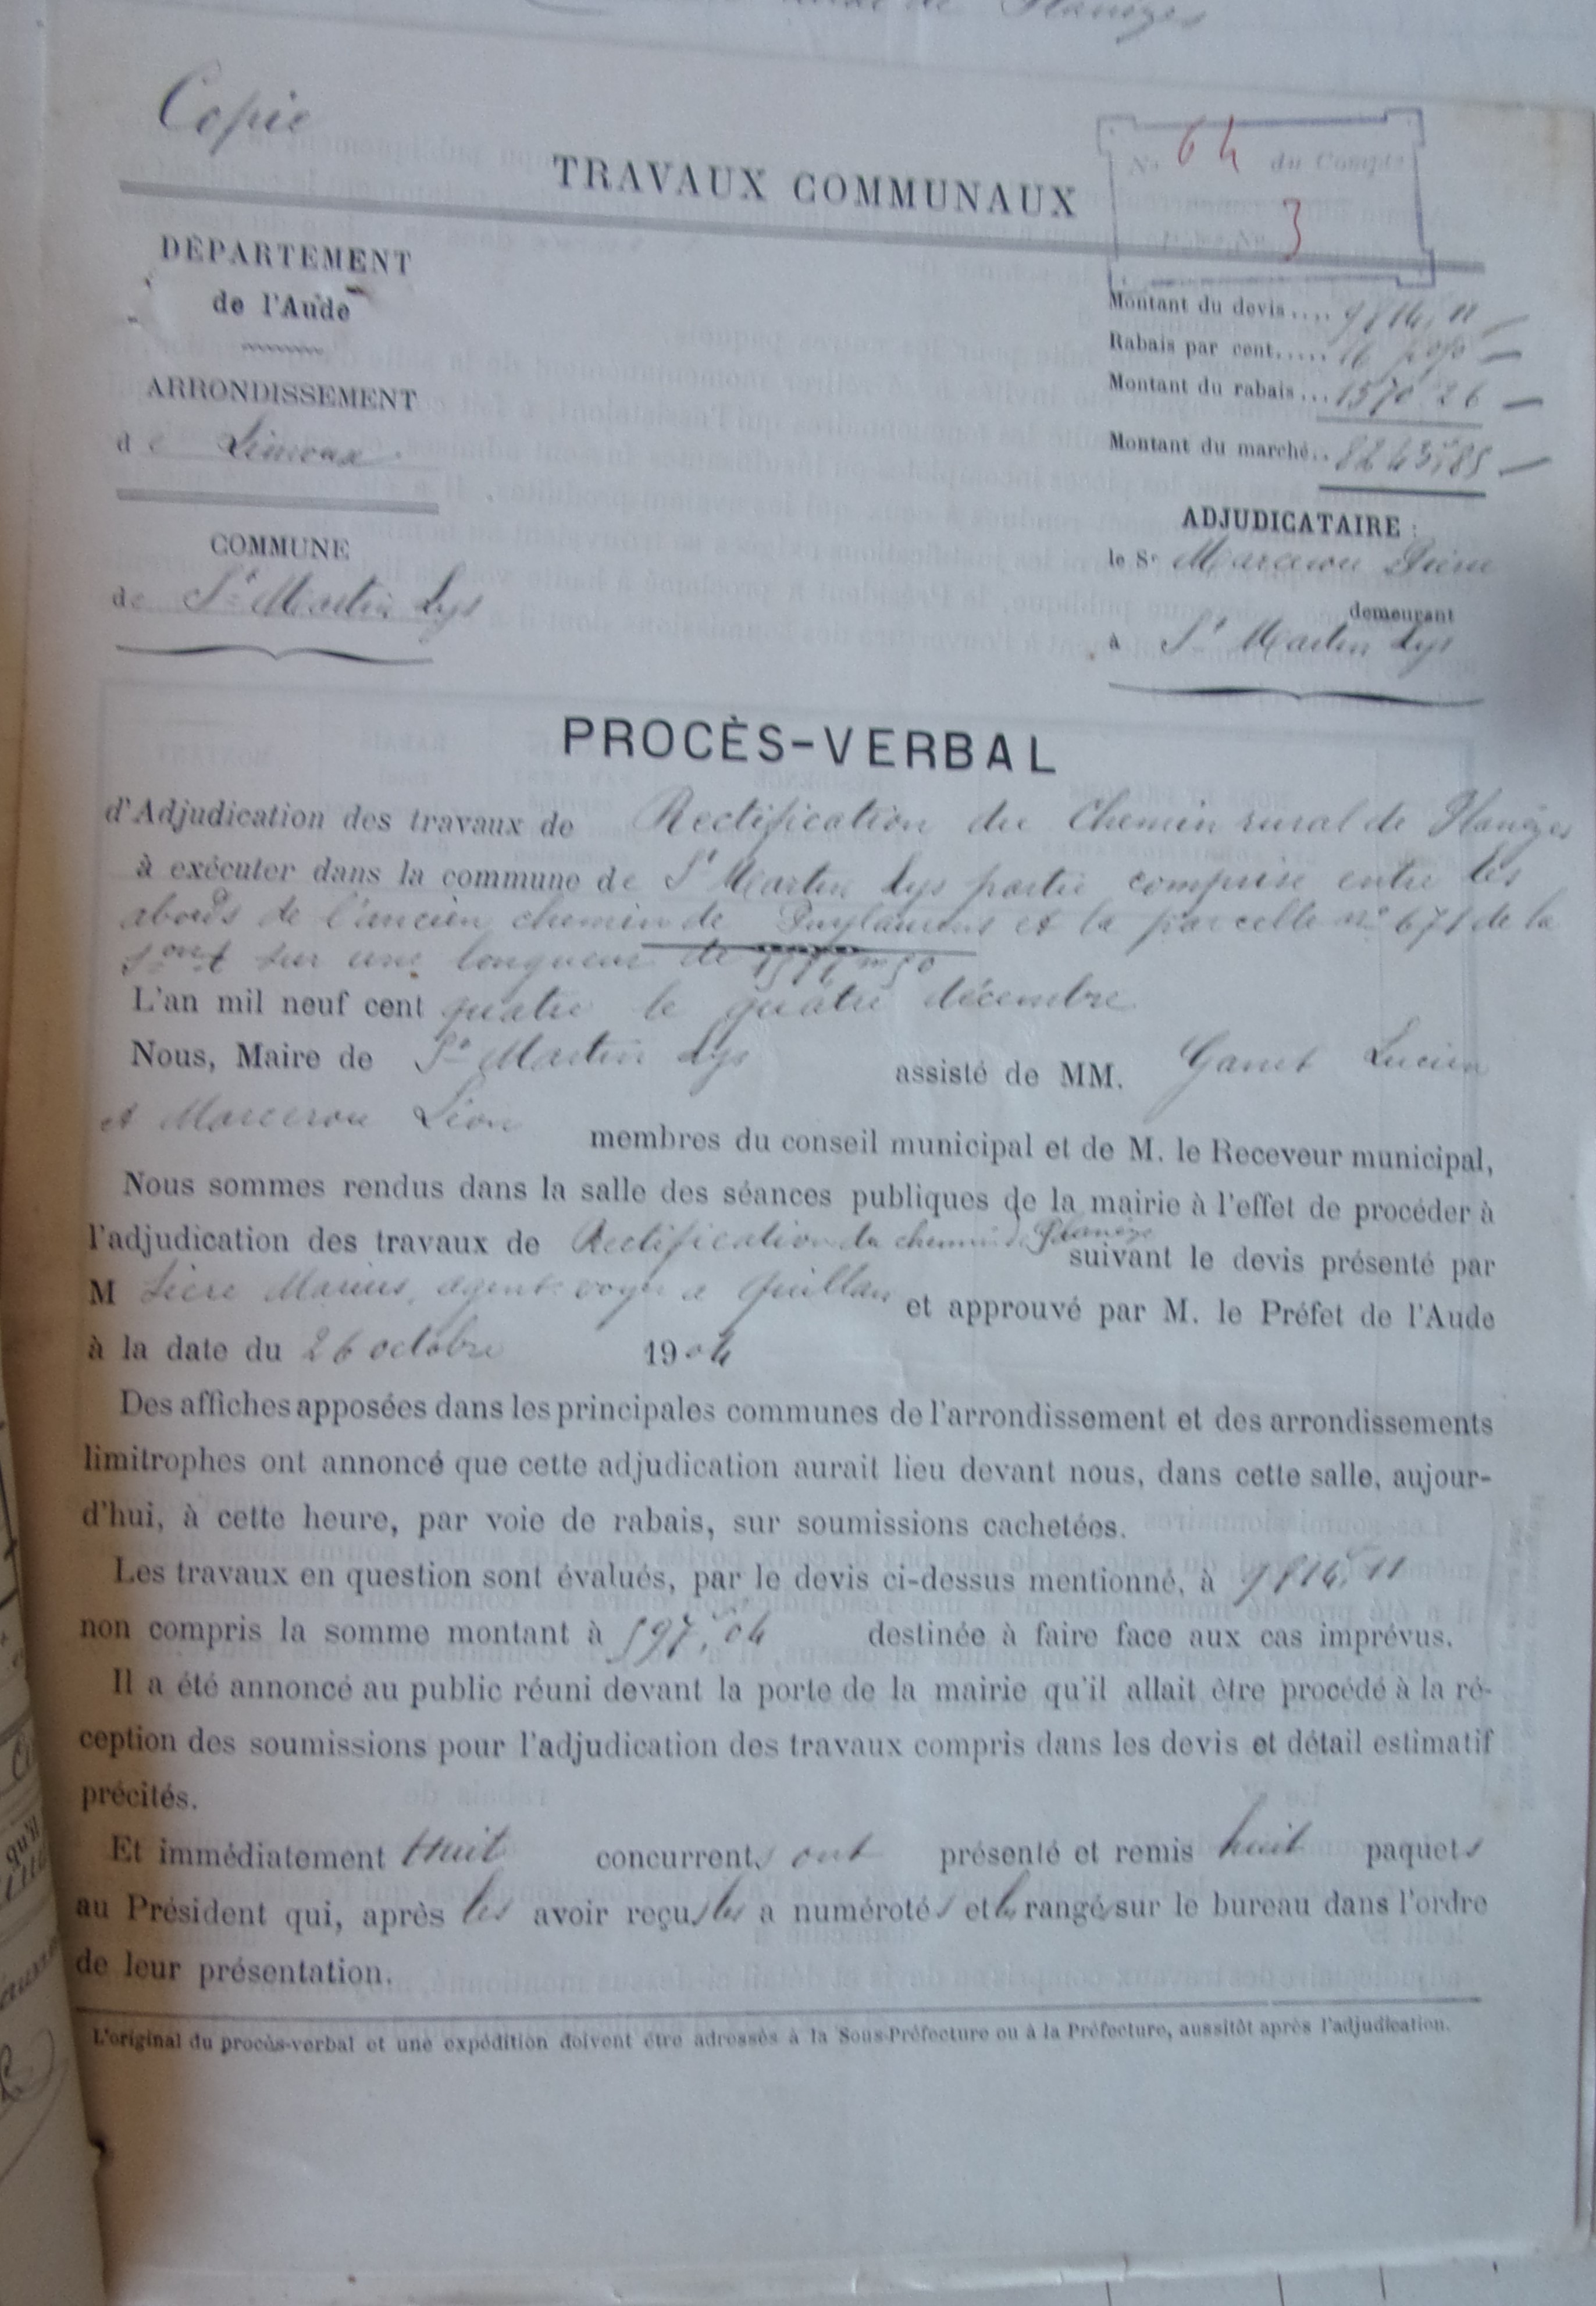 de Planèzes
Copie
TRAVAUX COMMUNAUX
No 64 du Compte
3
DÉPARTEMENT
de l'Aude
ARRONDISSEMENT
de Limoux
COMMUNE
de St Martin Lys
Montant du devis.... 9814,11
Rabais par cent..... 16 p%
Montant du rabais... 1570.26
Montant du marché.. 8243,85
ADJUDICATAIRE :
le Sr Marcerou Pierre
demeurant
à St Martin Lys
PROCÈS-VERBAL
d'Adjudication des travaux de Rectification du Chemin rural de Planèzes
à exécuter dans la commune de St Martin Lys partie comprise entre les
abords de l'ancien chemin de Puylaurens et la parcelle no 671 de la
son sur une longueur de
L'an mil neuf cent quatre le quatre décembre
Nous, Maire de St Martin Lys assisté de MM. Lucien
et Marcerou Léon membres du conseil municipal et de M. le Receveur municipal,
Nous sommes rendus dans la salle des séances publiques de la mairie à l'effet de procéder à
l'adjudication des travaux de Rectification du chemin de Planèze suivant le devis présenté par
M Marius, agent-voyer à Quillan et approuvé par M. le Préfet de l'Aude
à la date du 26 octobre 1904
Des affiches apposées dans les principales communes de l'arrondissement et des arrondissements
limitrophes ont annoncé que cette adjudication aurait lieu devant nous, dans cette salle, aujour-
d'hui, à cette heure, par voie de rabais, sur soumissions cachetées.
Les travaux en question sont évalués, par le devis ci-dessus mentionné, à 9814,11
non compris la somme montant à 597,04 destinée à faire face aux cas imprévus.
Il a été annoncé au public réuni devant la porte de la mairie qu'il allait être procédé à la ré-
ception des soumissions pour l'adjudication des travaux compris dans les devis et détail estimatif
précités.
Et immédiatement huit concurrents ont présenté et remis huit paquets
au Président qui, après les avoir reçus les a numérotés et les rangés sur le bureau dans l'ordre
de leur présentation.
L'original du procès-verbal et une expédition doivent être adressés à la Sous-Préfecture ou à la Préfecture, aussitôt après l'adjudication.